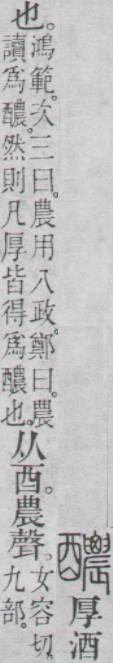 醲厚酒
也。
鴻範。次三曰。農用八政。鄭曰。農
讀爲醲。然則凡厚皆得爲醲也。
从酉。農聲。
女容切。
九部。